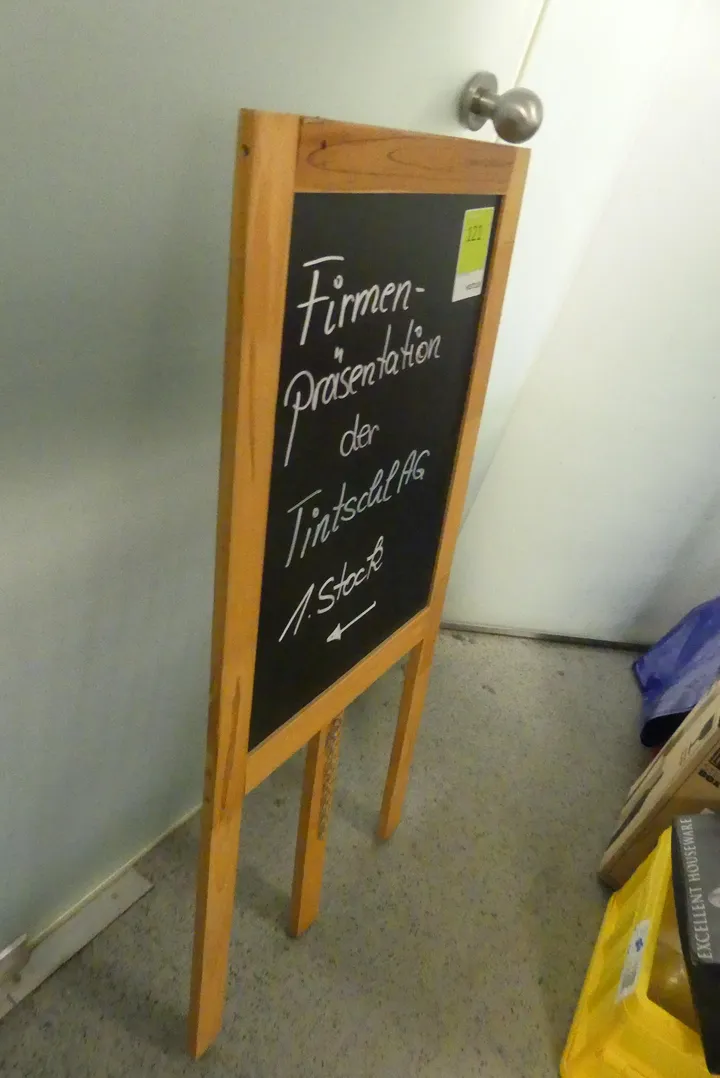 121
Firmen-
Präsentation
der
Tintschl AG
1. Stock
EXCELLENT HOUSEWARE